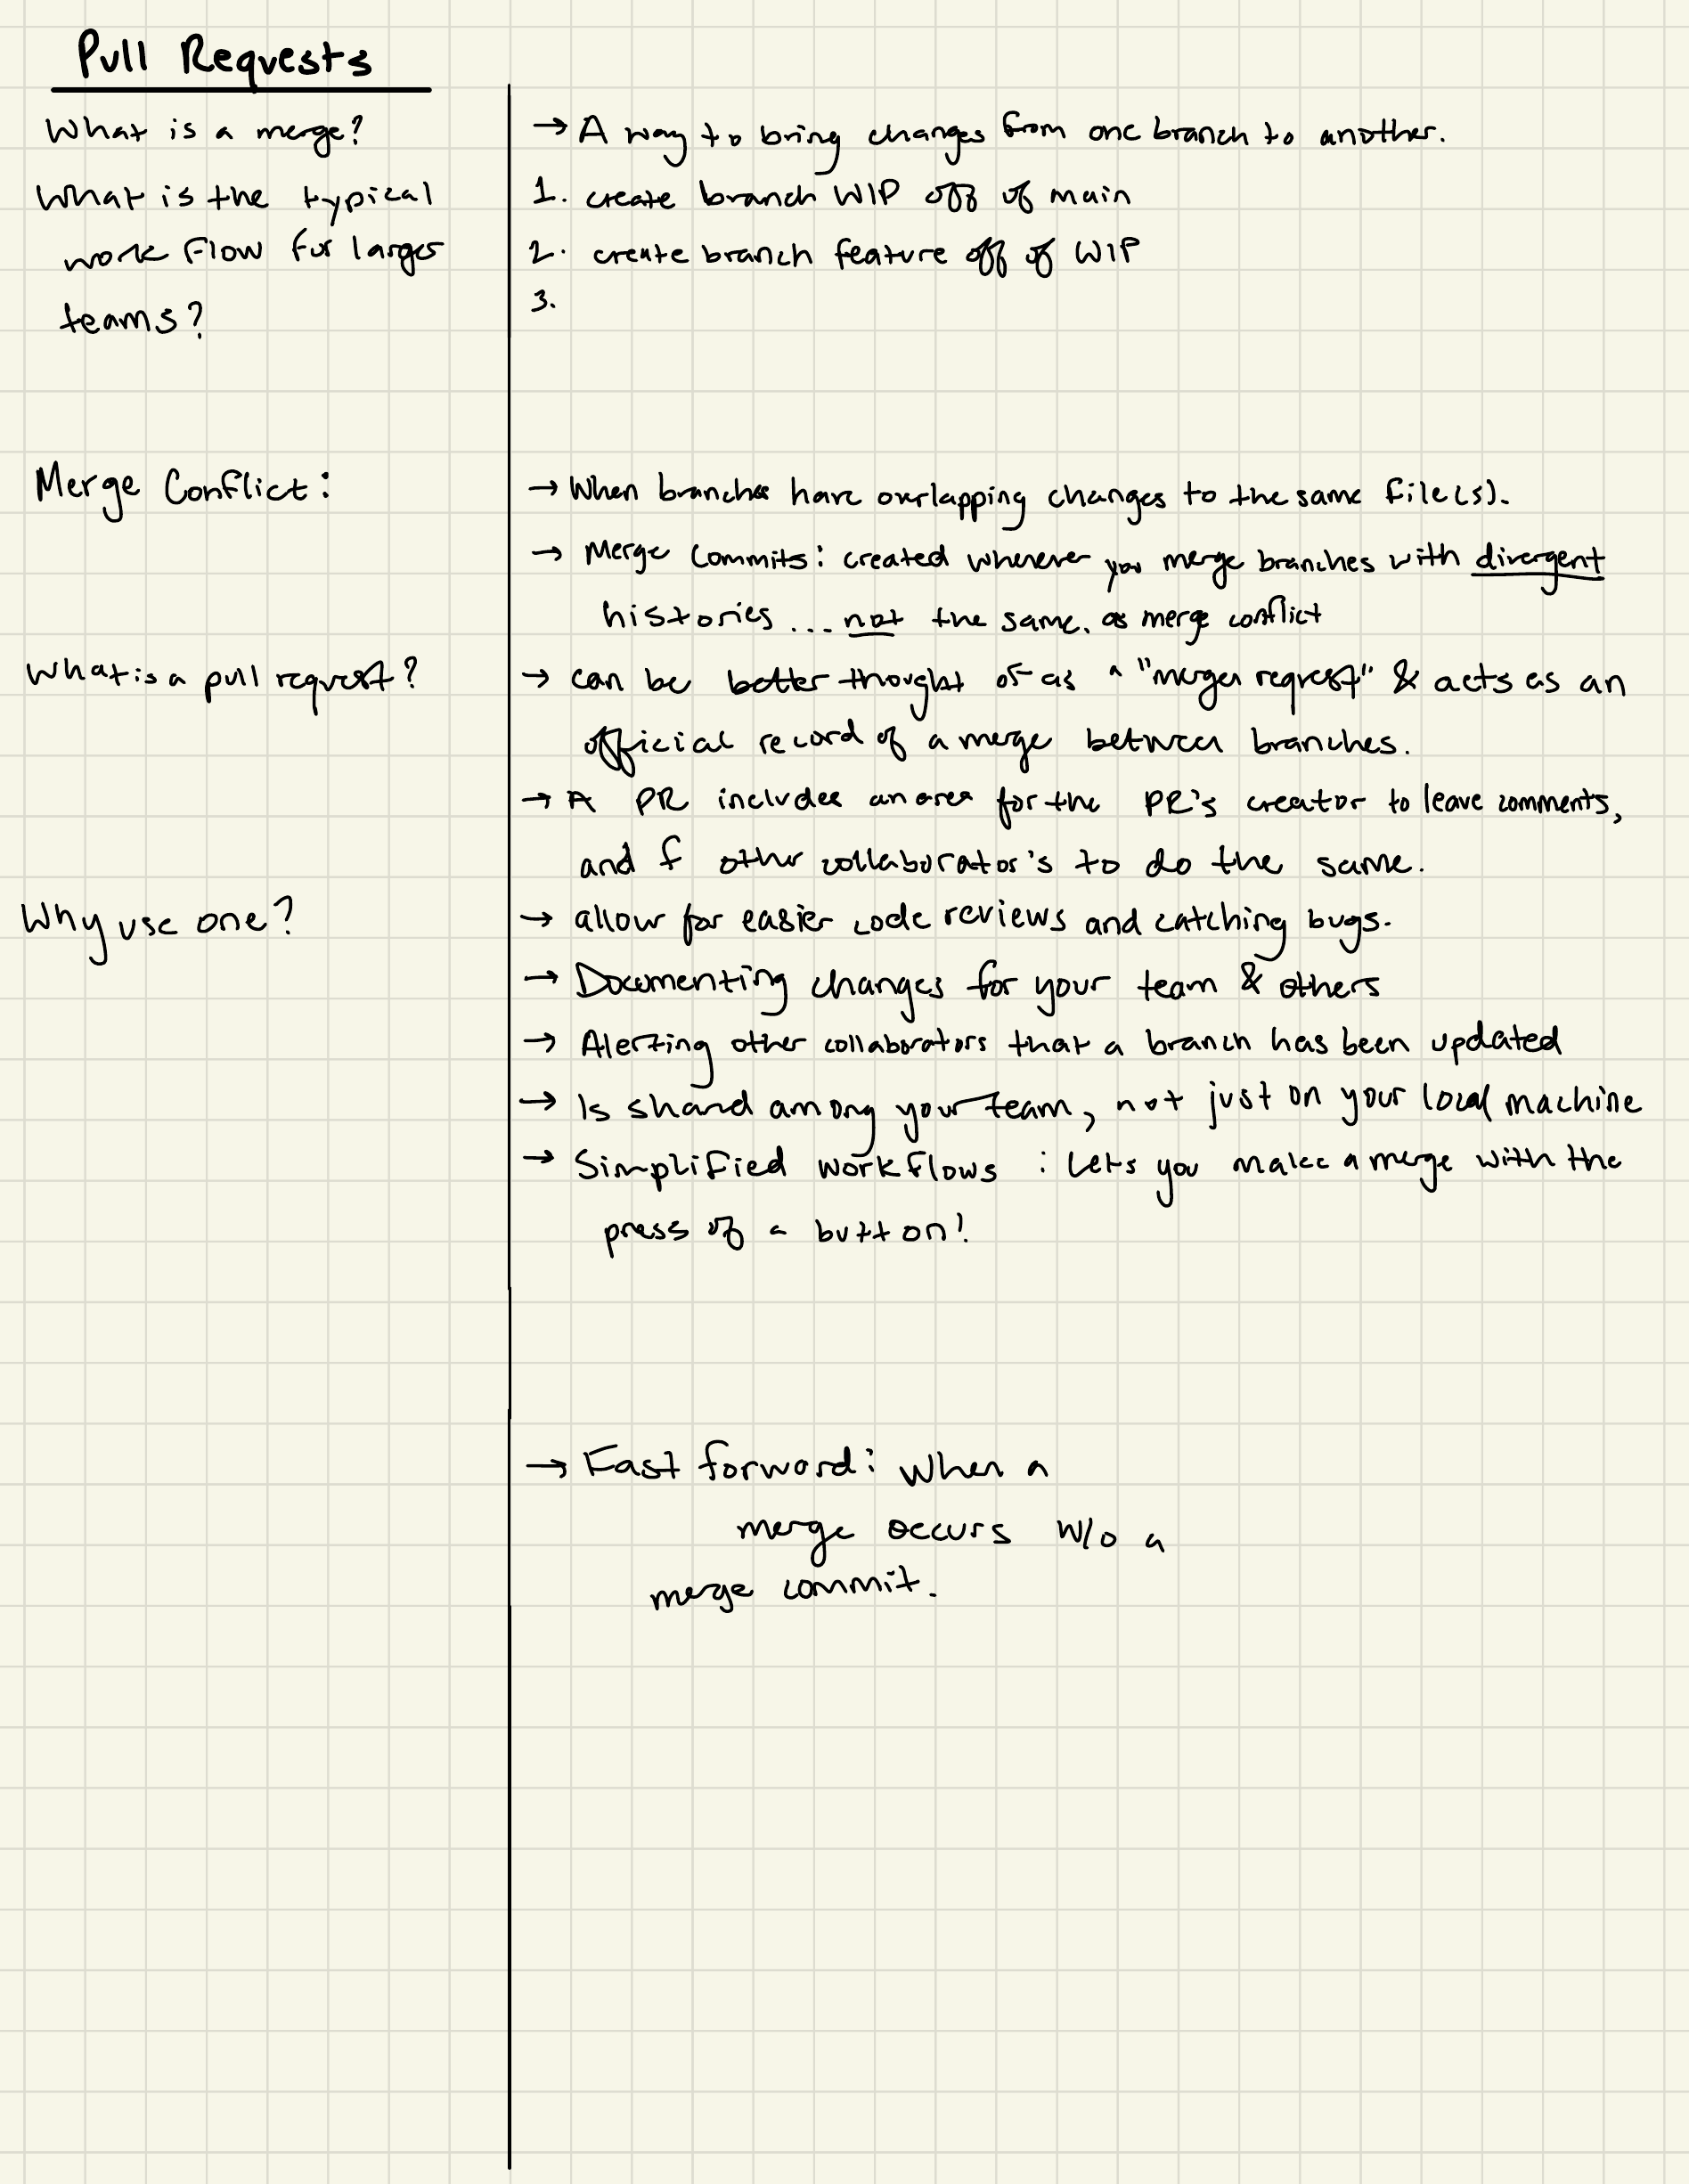 Pull Requests
What is a merge?
→ A way to bring changes from one branch to another.
What is the typical
work flow for larger
teams?
1. create branch WIP off of main
2. create branch feature off of WIP
3.
Merge Conflict:
→ When branches have overlapping changes to the same file(s).
→ Merge Commits: created whenever you merge branches with divergent
histories... not the same. as merge conflict
What is a pull request?
→ can be better thought of as a "merger request" & acts as an
official record of a merge between branches.
→ A PR includes an area for the PR's creator to leave comments,
and f other collaborator's to do the same.
Why use one?
→ allow for easier code reviews and catching bugs.
→ Documenting changes for your team & others
→ Alerting other collaborators that a branch has been updated
→ Is shared among your team, not just on your local machine
→ Simplified workflows : Lets you make a merge with the
press of a button!
→ Fast forward: When a
merge occurs w/o a
merge commit.